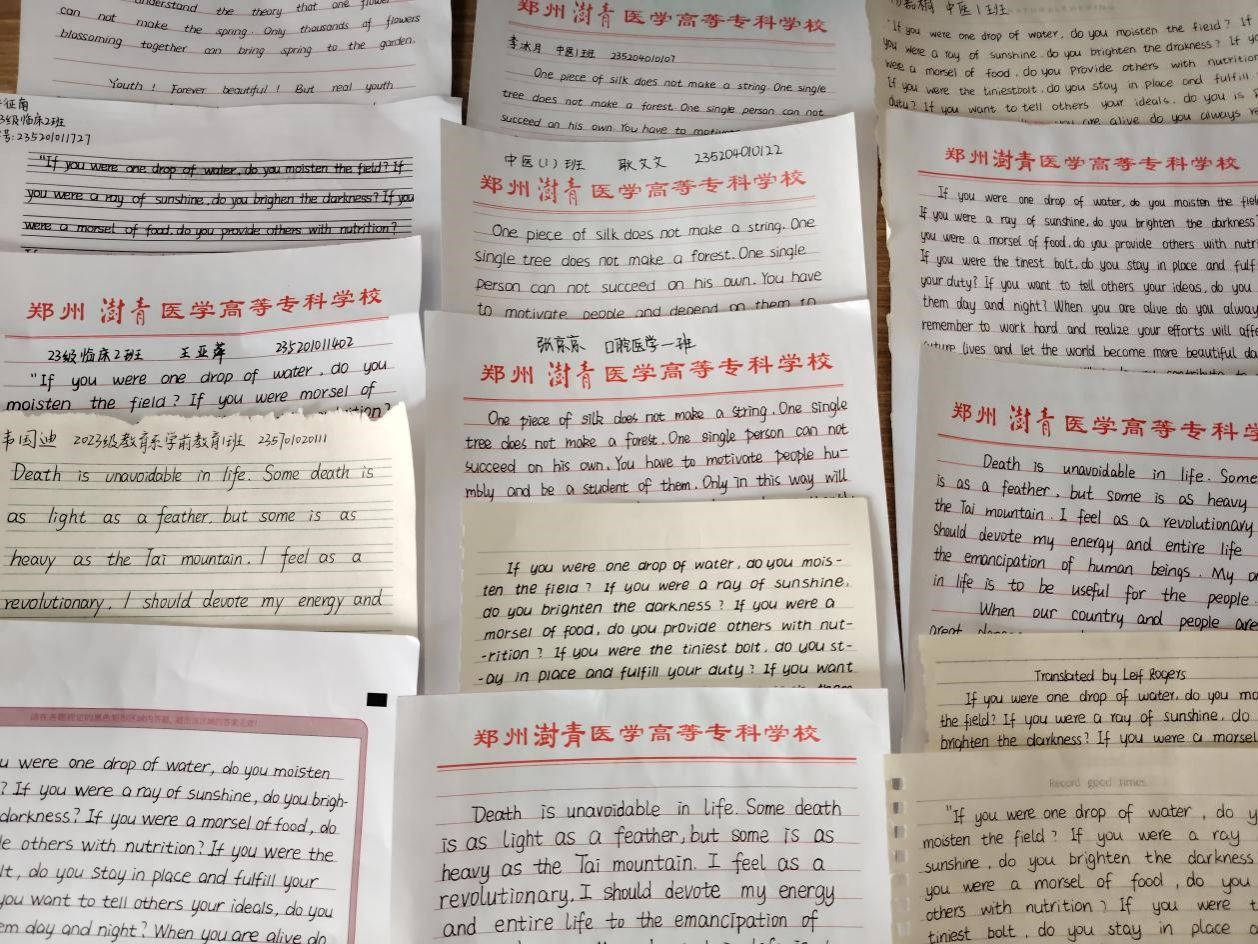 understand the theory that one flower
can not make the spring. Only thousands of flowers
blossoming together can bring spring to the garden.
Youth ! Forever beautiful ! But real youth
郑州澍青医学高等专科学校
李冰月 中医1班 235204010107
One piece of silk does not make a string. One single
tree does not make a forest. One single person can not
succeed on his own. You have to
中医1班
"If you were one drop of water, do you moisten the field? If
you were a ray of sunshine. do you brighten the drakness? If
were a morsel of food. do you Provide others with nutrition
If you were the tiniestbolt, do you stay in place and fulfill
duty? If you want to tell others your ideals. do you is
you are alive do you always
23级临床2班
号:235201011727
"If you were one drop of water, do you moisten the field? If
you were a ray of sunshine, do you brighen the darkness? If you
were a morsel of food, do you provide others with nutrition?
中医(1)班 耿文文 235204010122
郑州澍青医学高等专科学校
One piece of silk does not make a string. One
single tree does not make a forest. One single
person can not succeed on his own. You have
to motivate people and depend on them to
郑州澍青医学高等专科学校
If you were one drop of water, do you moisten the
If you were a ray of sunshine, do you brighten the darkness?
you were a morsel of food, do you provide others with
If you were the tinest bolt, do you stay in place and
your duty? If you want to tell others your ideas, do you
them day and night? When you are alive do you
remember to work hard and realize your efforts will
future lives and let the world become more beautiful
郑州澍青医学高等专科学校
23级临床2班 王亚萍 235201011402
"If you were one drop of water, do you
moisten the field? If you were morsel of
张京京 口腔医学一班
郑州澍青医学高等专科学校
One piece of silk does not make a string. One single
tree does not make a forest. One single person can not
succeed on his own. You have to motivate people hu-
mbly and be a student of them. Only in this way will
郑州澍青医学高等专科学
Death is unavoidable in life. Some
is as a feather, but some is as heavy
the Tai mountain. I feel as a revolutionary
should devote my energy and entire life
the emancipation of human beings. My
in life is to be useful for the people.
When our country and people are
great
韦因迪 2023级教育系学前教育1班 235701020111
Death is unavoidable in life. Some death is
as light as a feather, but some is as
heavy as the Tai mountain. I feel as a
revolutionary. I should devote my energy and
If you were one drop of water, do you mois-
ten the field? If you were a ray of sunshine,
do you brighten the darkness? If you were a
morsel of food, do you provide others with nut-
-rition? If you were the tiniest bolt, do you st-
-ay in place and fulfill your duty? If you want
Translated by Leif Rogers
If you were one drop of water, do you
the field? If you were a ray of sunshine, do
brighten the darkness? If you were a morsel
请在各题规定的黑色矩形区域内答题，超出该区域的答案无效!
were one drop of water, do you moisten
? If you were a ray of sunshine, do you brigh-
darkness? If you were a morsel of food, do
others with nutrition? If you were the
do you stay in place and fulfill your
you want to tell others your ideals, do you
day and night? When you are alive do
郑州澍青医学高等专科学校
Death is unavoidable in life. Some death
is as light as a feather, but some is as
heavy as the Tai mountain. I feel as a
revolutionary, I should devote my energy
and entire life to the emancipation of
Record good times
"If you were one drop of water, do
moisten the field? If you were a ray
sunshine, do you brighten the darkness
you were a morsel of food, do you
others with nutrition? If you were
tiniest bolt, do you stay in place